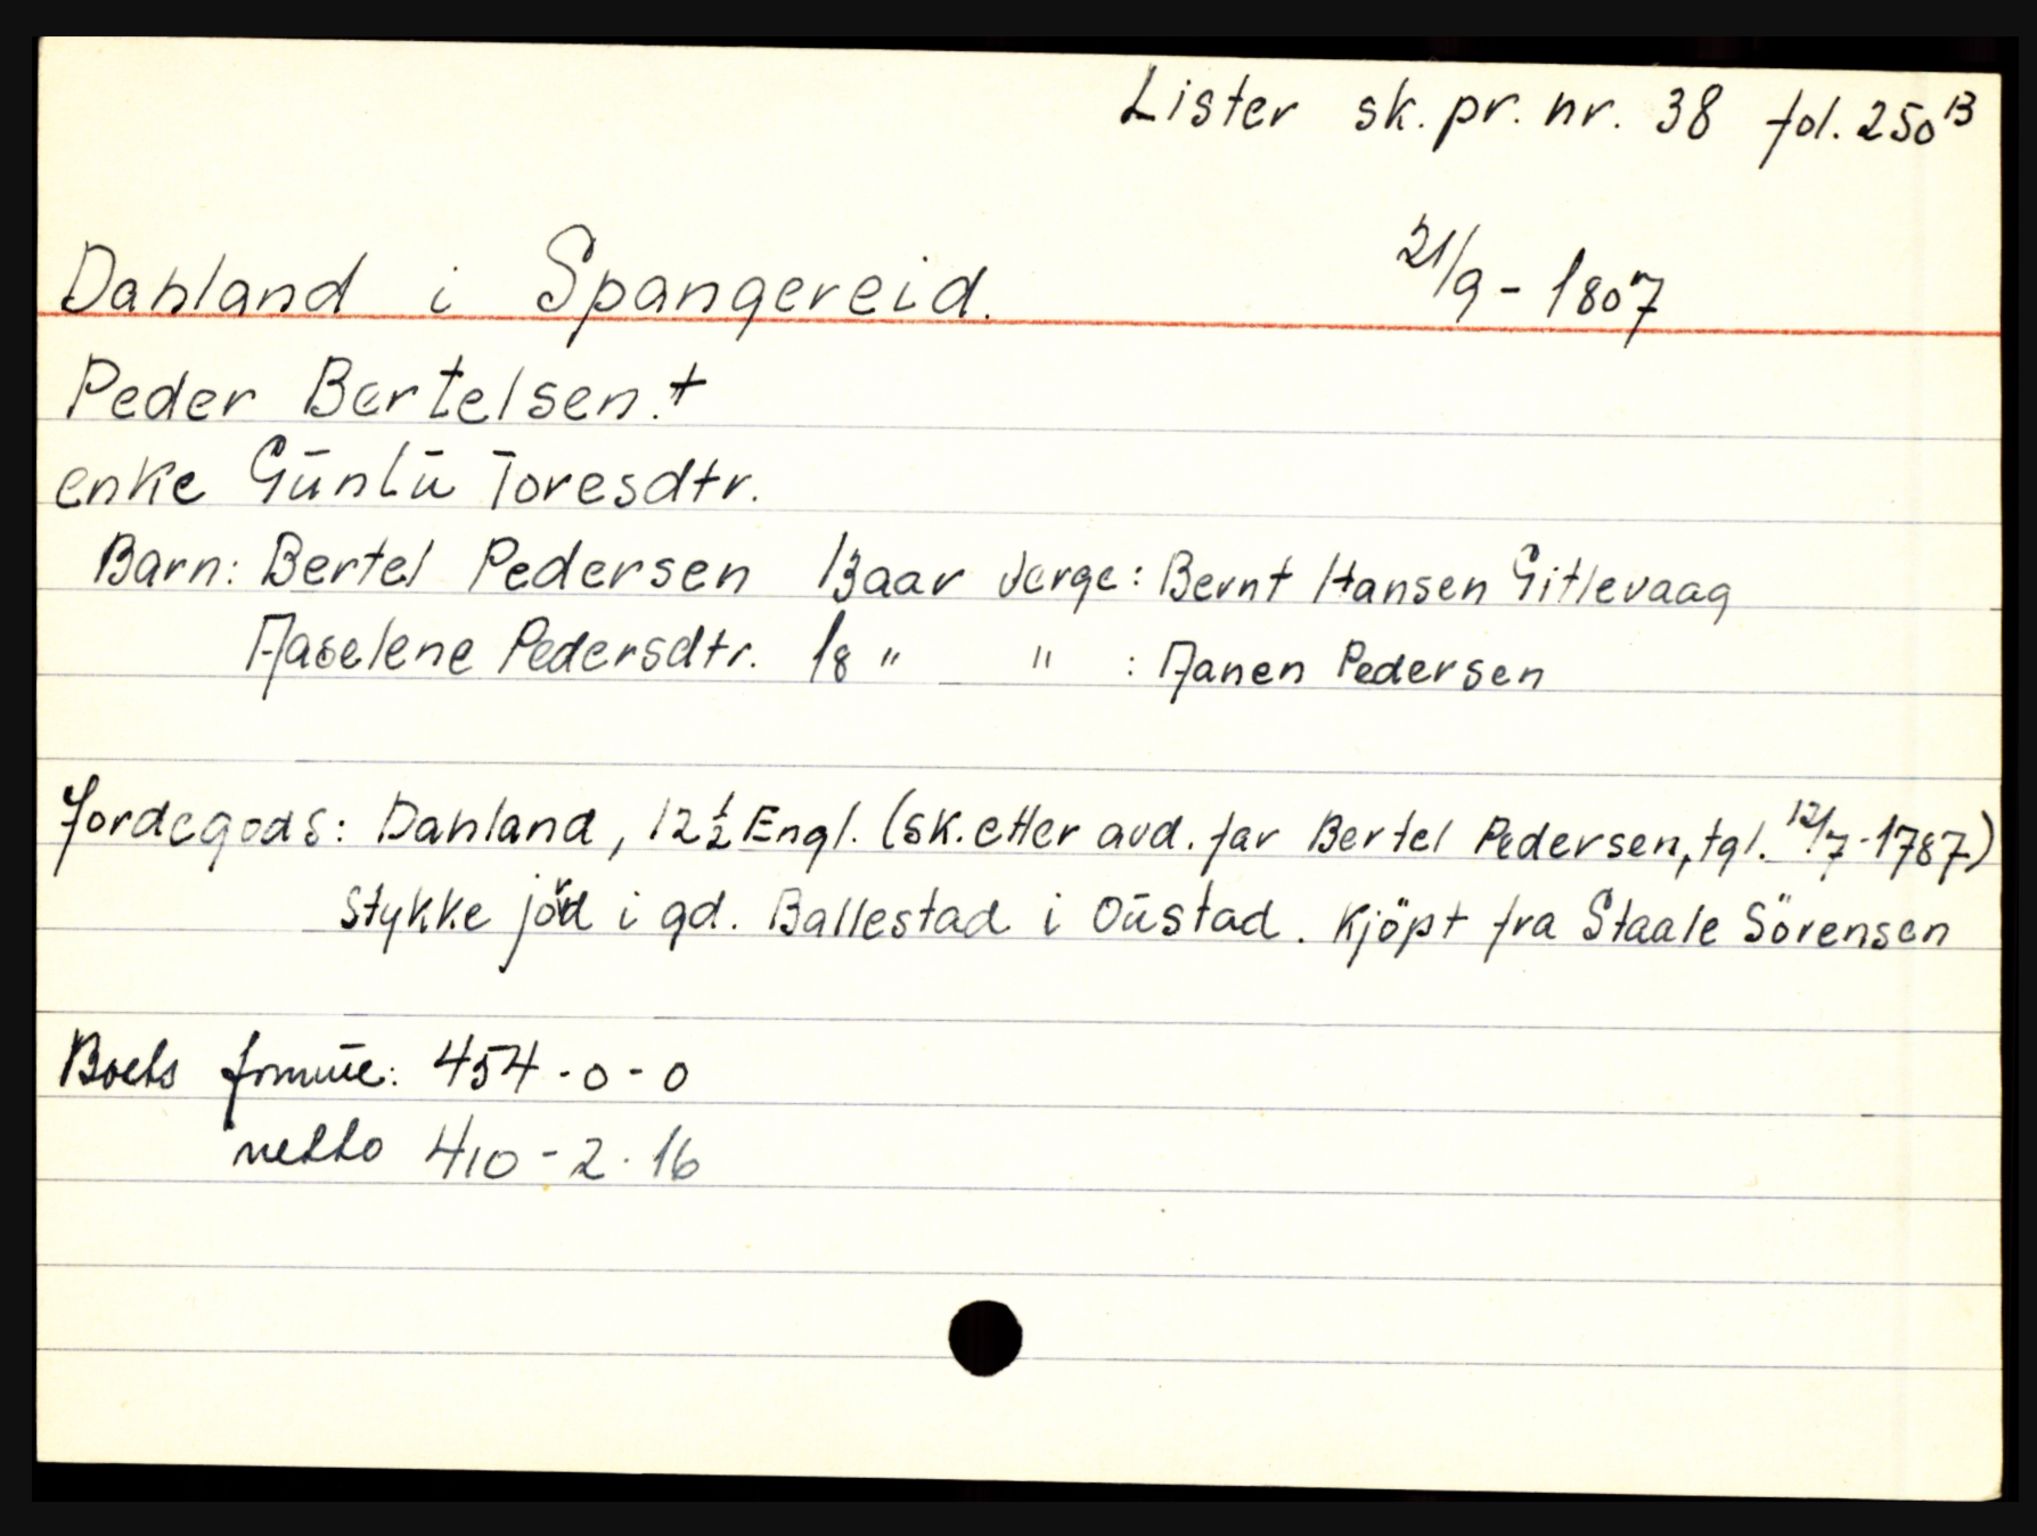 Lister sk. pr. nr. 38 fol. 250B
Dahland i Spangereid. 21/9 - 1807
Peder Bertelsen. +
enke Gūnlū Toresdtr.
Barn: Bertel Pedersen 13 aar verge: Bernt Hansen Gitlevaag
Aaselene Pedersdtr. 18 " " : Aanen Pedersen
Jordegods: Dahland, 12 ½ Engl. (sk. etter avd. far Bertel Pedersen, tgl. 12/7 - 1787)
stykke jord i gd. Ballestad i Oūstad. Kjöpt fra Staale Sörensen
Boets formūe: 454 - 0 - 0
netto 410 - 2 - 16